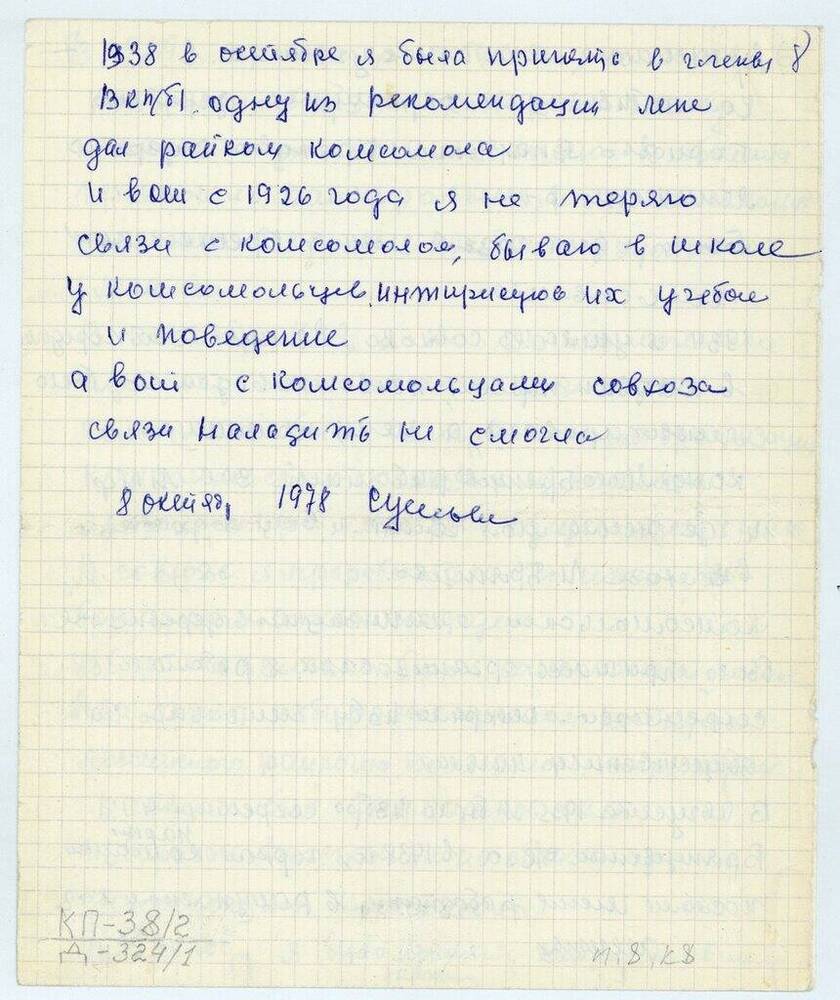 1938 в октябре я была принята в члены 8
ВКП/б/. одну из рекомендации мне
дал райком комсомола
и вот с 1926 года я не теряю
связи с комсомолом, бываю в школе
у комсомольцев, их учебой
и поведение
а вот с комсомольцами совхоза
связи наладить не смогла
8 октяб, 1978
КП-38/2
Д-324/1
п.8, к8